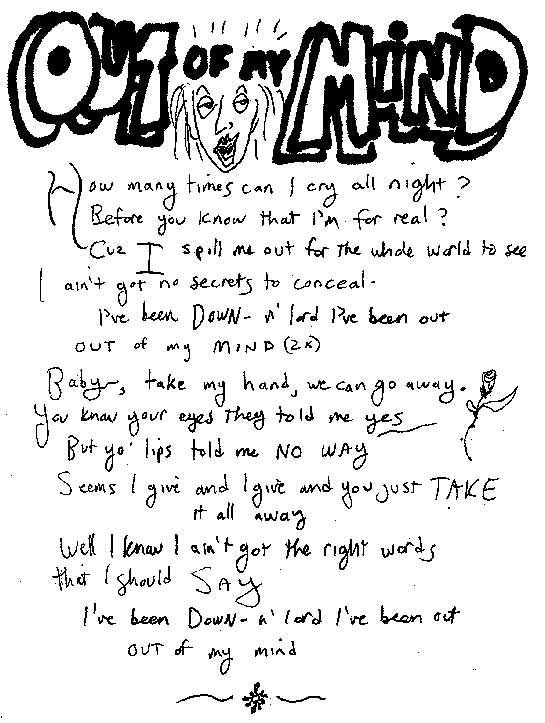 OUT OF MY MIND
How many times can I cry all night?
Before you know that I'm for real?
Cuz I spill me out for the whole world to see
I ain't got no secrets to conceal.
I've been DOWN- n' lord I've been out
OUT of my MIND (2x)
Baby~, take my hand, we can go away.
You know your eyes they told me yes
But yo' lips told me NO WAY
Seems I give and I give and you just TAKE
it all away
Well I know I ain't got the right words
that I should SAY
I've been DOWN- n' lord I've been out
OUT of my mind